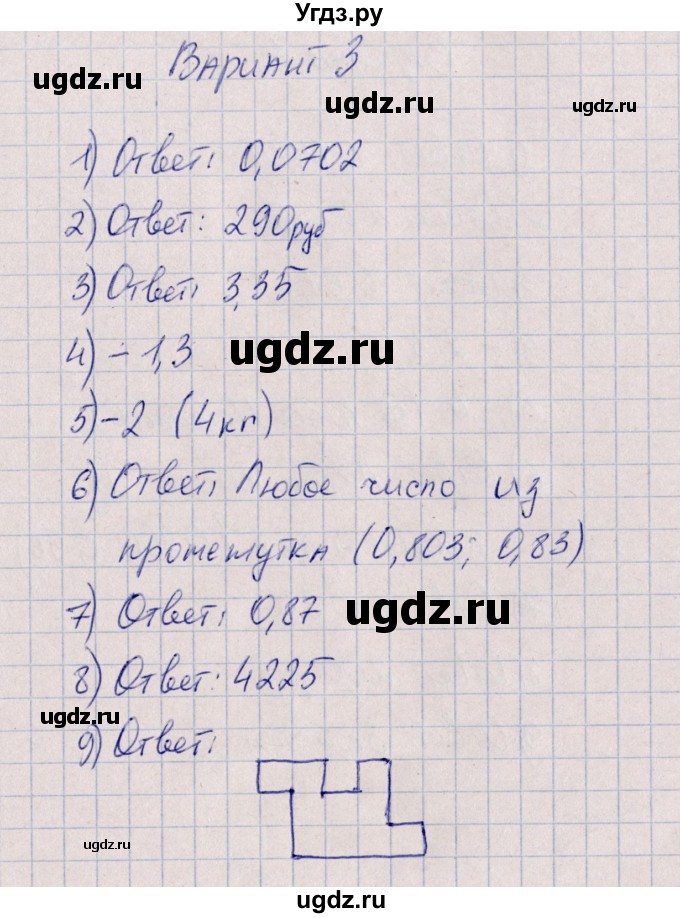 Угдз.ру
Вариант 3
ugdz.ru
ugdz.ru
ugdz.ru
1) Ответ: 0,0702
2) Ответ: 290 руб
3) Ответ: 3,35
4) - 1,3
ugdz.ru
5) - 2 (4 кг)
6) Ответ: Любое число из
промежутка (0,803; 0,83)
7) Ответ: 0,87
ugdz.ru
8) Ответ: 4225
ugdz.ru
9) Ответ:
ugdz.ru
ugdz.ru